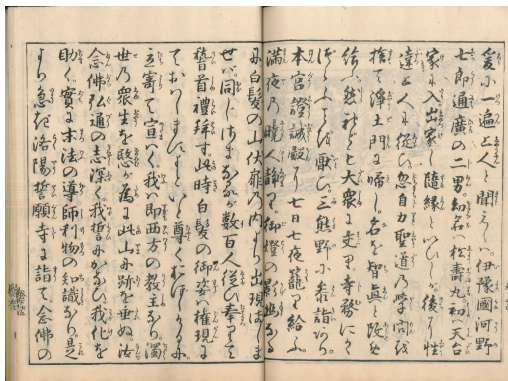 爰に一遍上人と聞えしハ。伊豫國河野
七郎通廣の二男。幼名ハ松壽丸。初ハ天台
家に入出家し隨縁といひしが後に性
達上人に従ひ忽自力聖道の學問を
捨て浄土門に帰し。名を智真と改め
給ふ。然れども大衆に交里寺務に
本宮證誠殿に七日七夜籠り給ふ。
満夜の暁人静り。御燈の影幽なる
に白髪の山伏扉の内より出現まします
世バ同じさまなるが数百人従ひ奉りて
稽首禮拝す。此時白髪の御姿ハ権現に
ておハしますといと尊くおぼしけるに
立寄て宣ハく我ハ即西方の教主なり。濁
世の衆生を愍が為に此山に跡を垂ぬ。汝
念佛弘通の志深く。我哲にかなひ我化を
助く。實に末法の導師利物の知識なり。是
より急ぎ洛陽誓願寺に詣て念佛の